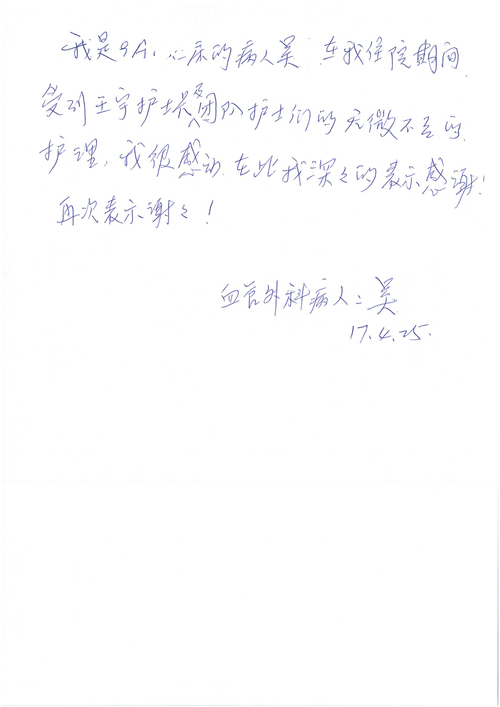 我是9A1心床的病人吴 在我住院期间
受到王宇护士长及团队护士们的无微不至的
护理,我很感动.在此我深々的表示感谢!
再次表示谢々!
血管外科病人:吴
17.4.25.